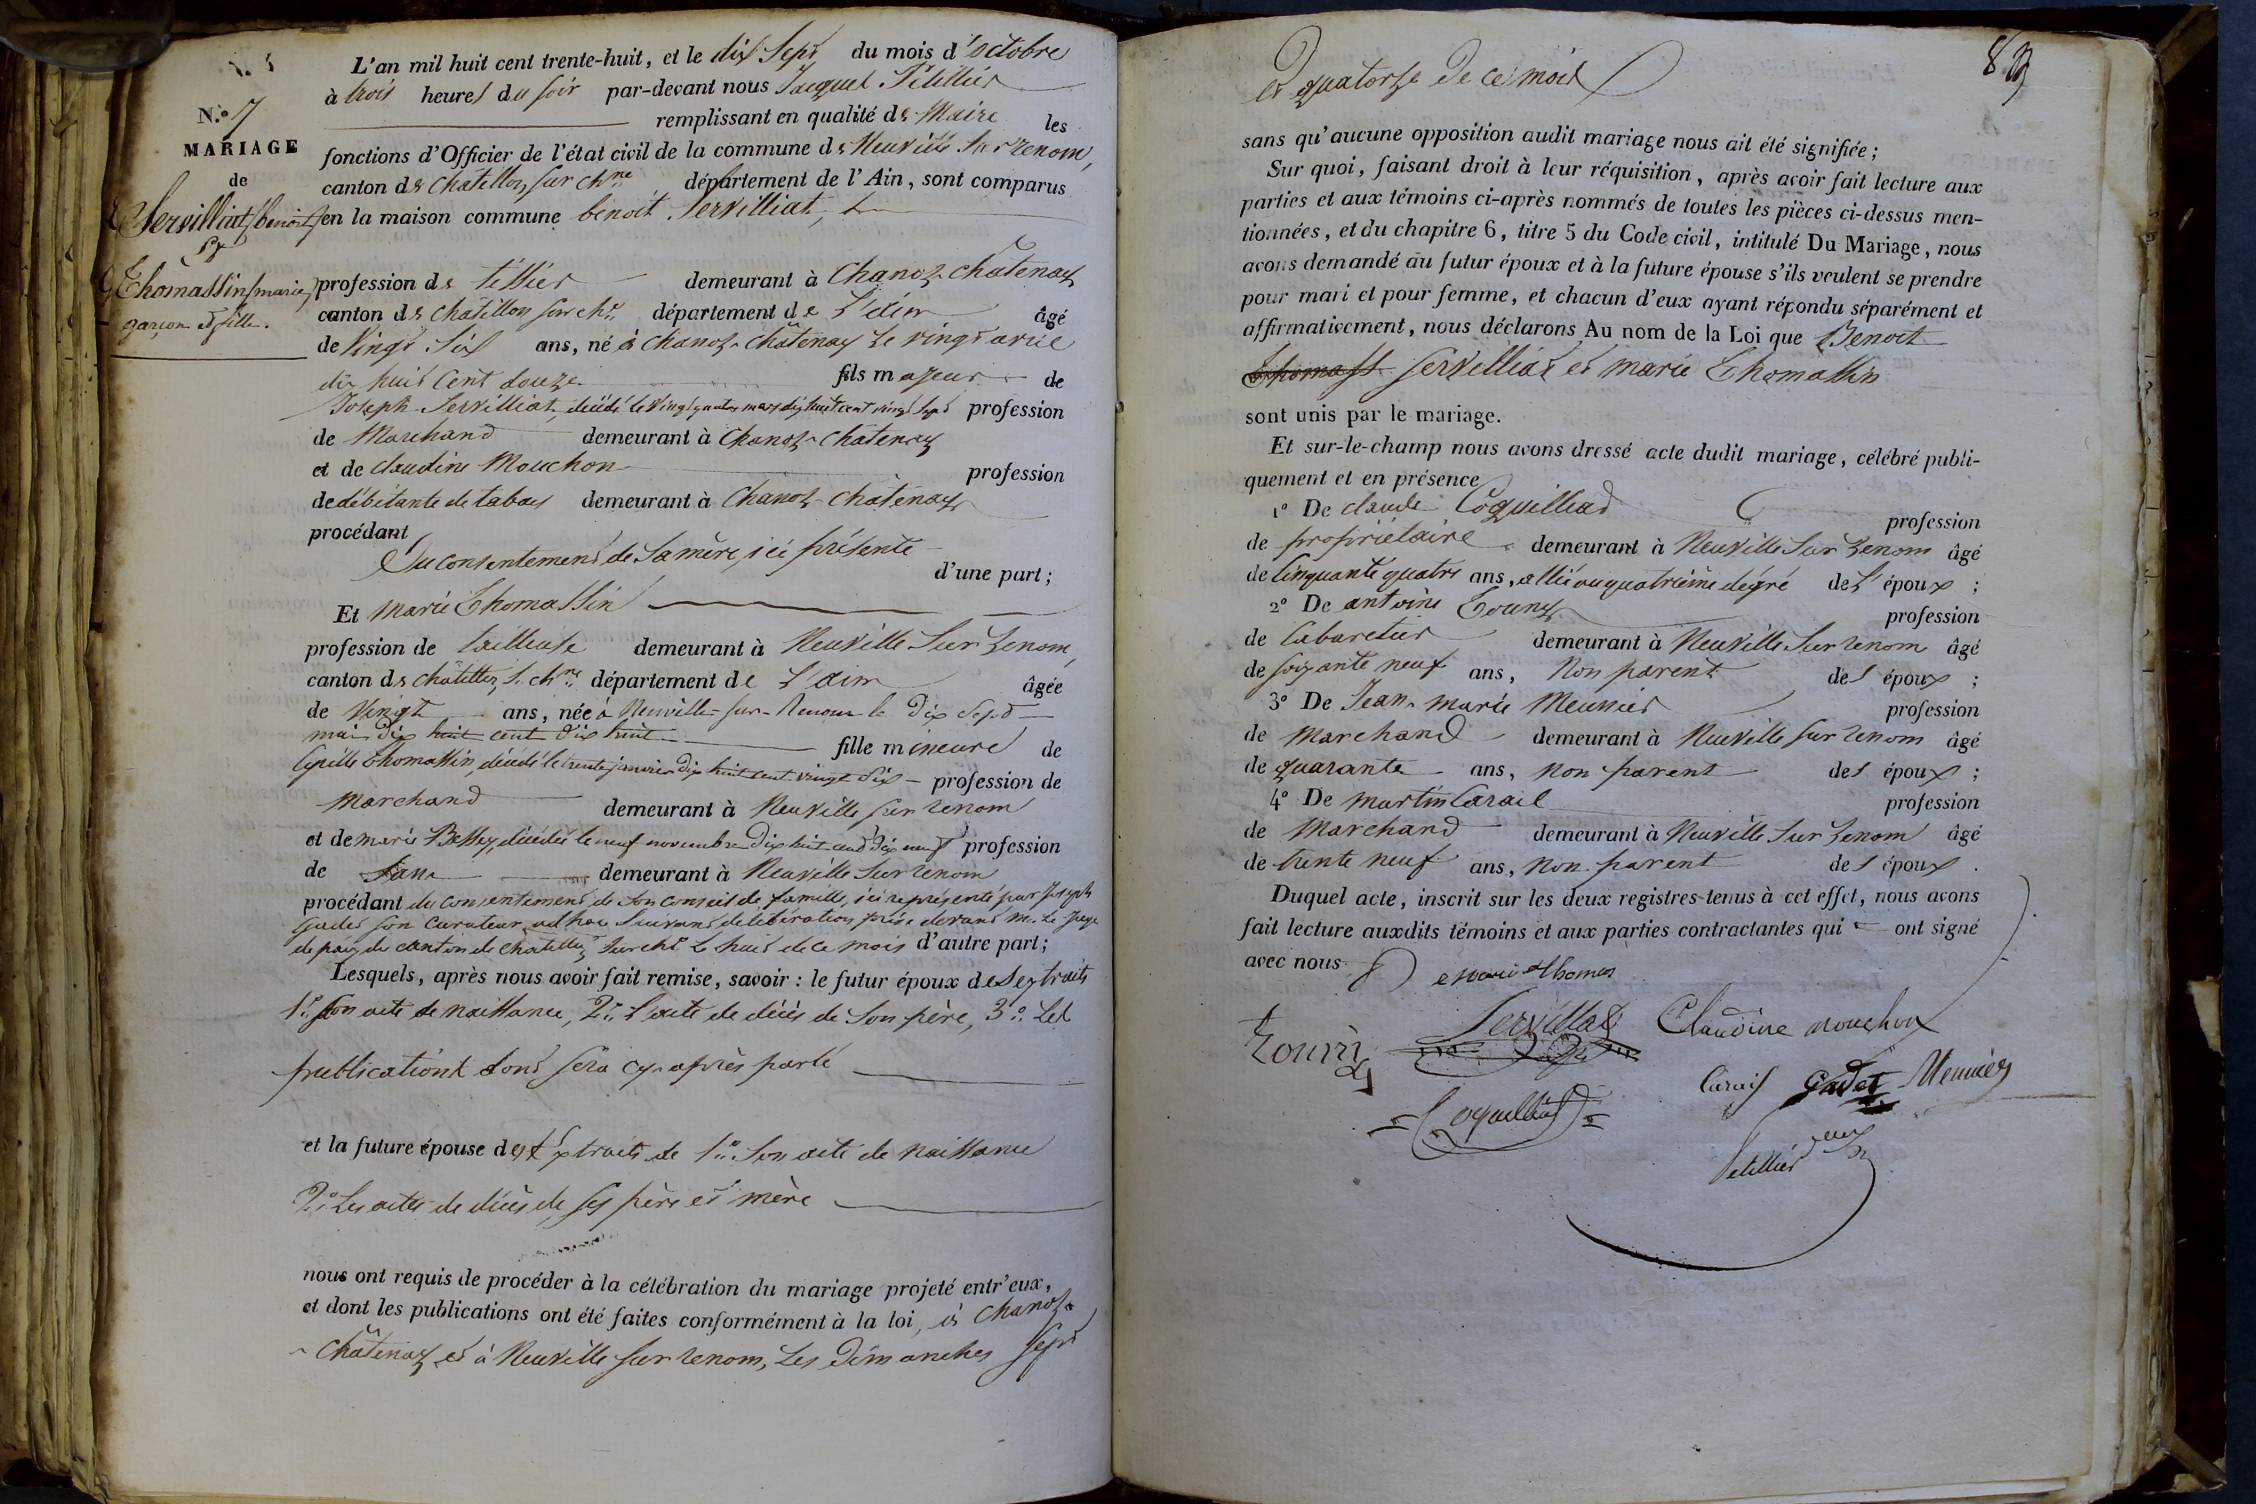 L'an mil huit cent trente-huit, et le dix Sept du mois d'octobre
à trois heures du soir par-devant nous Jacques Pétillier
remplissant en qualité de Maire les
N.º 7
MARIAGE
de
Servilliat (benoit)
Et
Thomassin (marie)
garçon et fille.
fonctions d'Officier de l'état civil de la commune de Neuville sur renom,
canton de chatillon sur ch.ne département de l'Ain, sont comparus
en la maison commune benoit Servilliat,
profession de demeurant à Chanoz-châtenay
canton de châtillon sur ch.ne département de L'ain âgé
de Vingt Six ans, né à chanoz-châtenay le vingt avril
dix huit cent douze fils majeur de
Joseph Servilliat, décédé le vingt quatre mars dix huit cent vingt sept profession
de Marchand demeurant à Chanoz-châtenay
et de claudine Mouchon profession
de débitante de tabacs demeurant à Chanoz-Châtenay
procédant
Du consentement de Sa mère, ici présente
d'une part ;
Et marie Thomassin
profession de tailleuse demeurant à Neuville Sur renom,
canton de châtillon s. ch.ne département de L'ain âgée
de Vingt ans, née à Neuville-sur-Renom le Dix Sept
mai dix huit cent dix huit fille mineure de
thomassin, décédé le trente janvier dix huit cent vingt Six profession de
Marchand demeurant à Neuville sur renom
et de marie Bessey, décédée le neuf novembre Dix huit cent dix neuf profession
de Sans demeurant à Neuville Sur renom
procédant du consentement de Son conseil de famille, ici représenté par Joseph
Gadet son curateur ad hoc Suivant délibération prise devant m. Le Juge
de paix du canton de chatillon Sur ch.ne le huit de ce mois d'autre part ;
Lesquels, après nous avoir fait remise, savoir : le futur époux des extraits
1.º Son acte de naissance, 2.º L'acte de décès de Son père, 3.º Les
publications dont sera cy-après parlé
et la future épouse des Extraits de 1.º Son acte de naissance
2.º Les actes de décès de ses père et mère
nous ont requis de procéder à la célébration du mariage projeté entr'eux,
et dont les publications ont été faites conformément à la loi, à Chanoz-
-Châtenay et à Neuville sur renom, Les Dimanches Sept
et quatorze de ce mois
sans qu'aucune opposition audit mariage nous ait été signifiée ;
Sur quoi, faisant droit à leur réquisition, après avoir fait lecture aux
parties et aux témoins ci-après nommés de toutes les pièces ci-dessus men-
tionnées, et du chapitre 6, titre 5 du Code civil, intitulé Du Mariage, nous
avons demandé au futur époux et à la future épouse s'ils veulent se prendre
pour mari et pour femme, et chacun d'eux ayant répondu séparément et
affirmativement, nous déclarons Au nom de la Loi que Benoit
Thomass Servilliat et marie Thomassin
sont unis par le mariage.
Et sur-le-champ nous avons dressé acte dudit mariage, célébré publi-
quement et en présence
1º De claude Coquilliad profession
de propriétaire demeurant à Neuville Sur renom âgé
de Cinquante quatre ans, allié au quatrième dégré de L'époux ;
2º De antoine profession
de Cabaretier demeurant à Neuville Sur renom âgé
de soixante neuf ans, Non parent des époux ;
3º De Jean-marie Meunier profession
de Marchand demeurant à Neuville sur renom âgé
de quarante ans, non parent des époux ;
4º De martin Carail profession
de Marchand demeurant à Neuville Sur renom âgé
de trente neuf ans, non parent des époux .
Duquel acte, inscrit sur les deux registres tenus à cet effet, nous avons
fait lecture auxdits témoins et aux parties contractantes qui ont signé
avec nous
Servillat Claudine mouchon
Carail Gadet Meunier
Coquilliad
Petillier